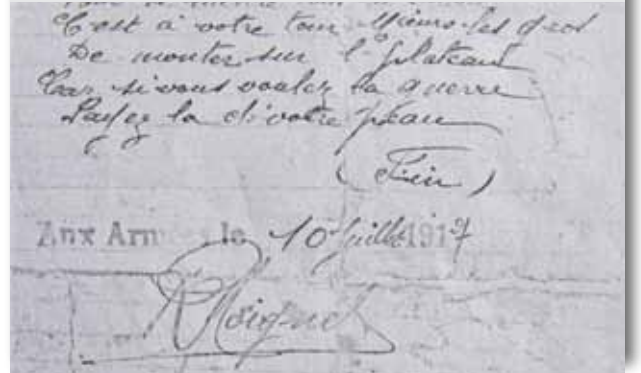 C'est à votre tour Mieurs les gros
De monter sur l'plateau
Car si vous voulez la guerre
Payez la d'votre peau
(Fin)
Aux Armées le 10 Juillet 1917